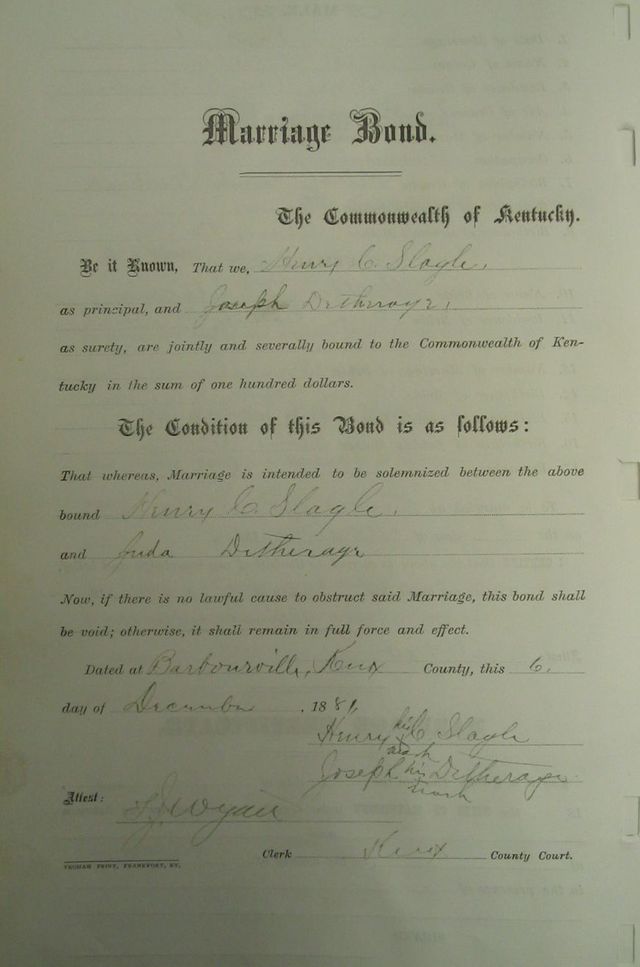 Marriage Bond.
The Commonwealth of Kentucky.
Be it Known, That we, Henry C. Slagle,
as principal, and Joseph Detherage,
as surety, are jointly and severally bound to the Commonwealth of Ken-
tucky in the sum of one hundred dollars.
The Condition of this Bond is as follows:
That whereas, Marriage is intended to be solemnized between the above
bound Henry C. Slagle,
and Juda Detherage
Now, if there is no lawful cause to obstruct said Marriage, this bond shall
be void; otherwise, it shall remain in full force and effect.
Dated at Barbourville, Knox County, this 6.
day of December, 188
his
Henry C Slagle
mark
Joseph his Detherage
mark
Attest:
Clerk Knox County Court.
YEOMAN PRINT, FRANKFORT, KY.